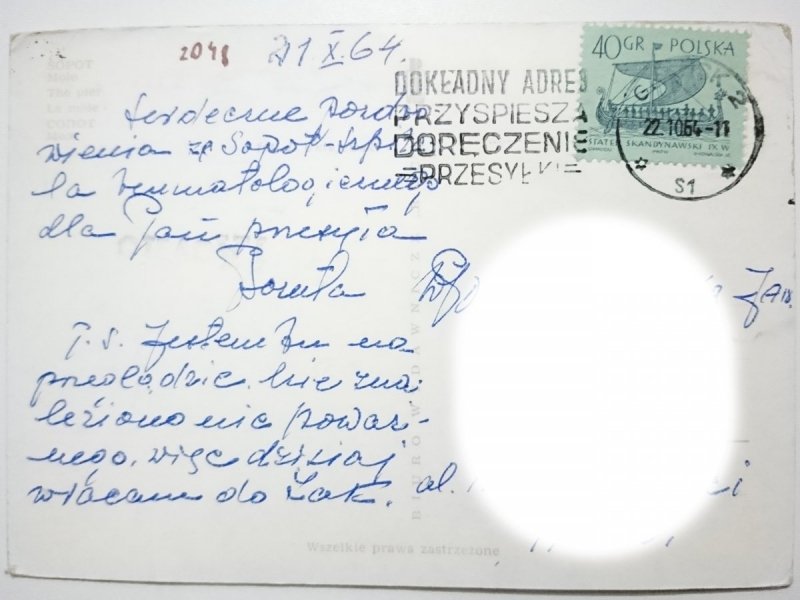 2048
21 X. 64.
SOPOT
Molo
The pier
DOKŁADNY ADRES
PRZYSPIESZA
DORĘCZENIE
PRZESYŁKI
40 GR POLSKA
STATEK SKANDYNAWSKI IX W
22.10.64-11
S1
Serdeczne pozdro
wienia ze Sopot-szpita
la reumatologicznego
dla Pań przesyła
P.S. Jestem tu na
przeglądzie. Nie zna-
leziono nic poważ-
nego, więc dzisiaj
wracam do Zak.
Jan.
al.
BIURO WYDAWNICZE
Wszelkie prawa zastrzeżone